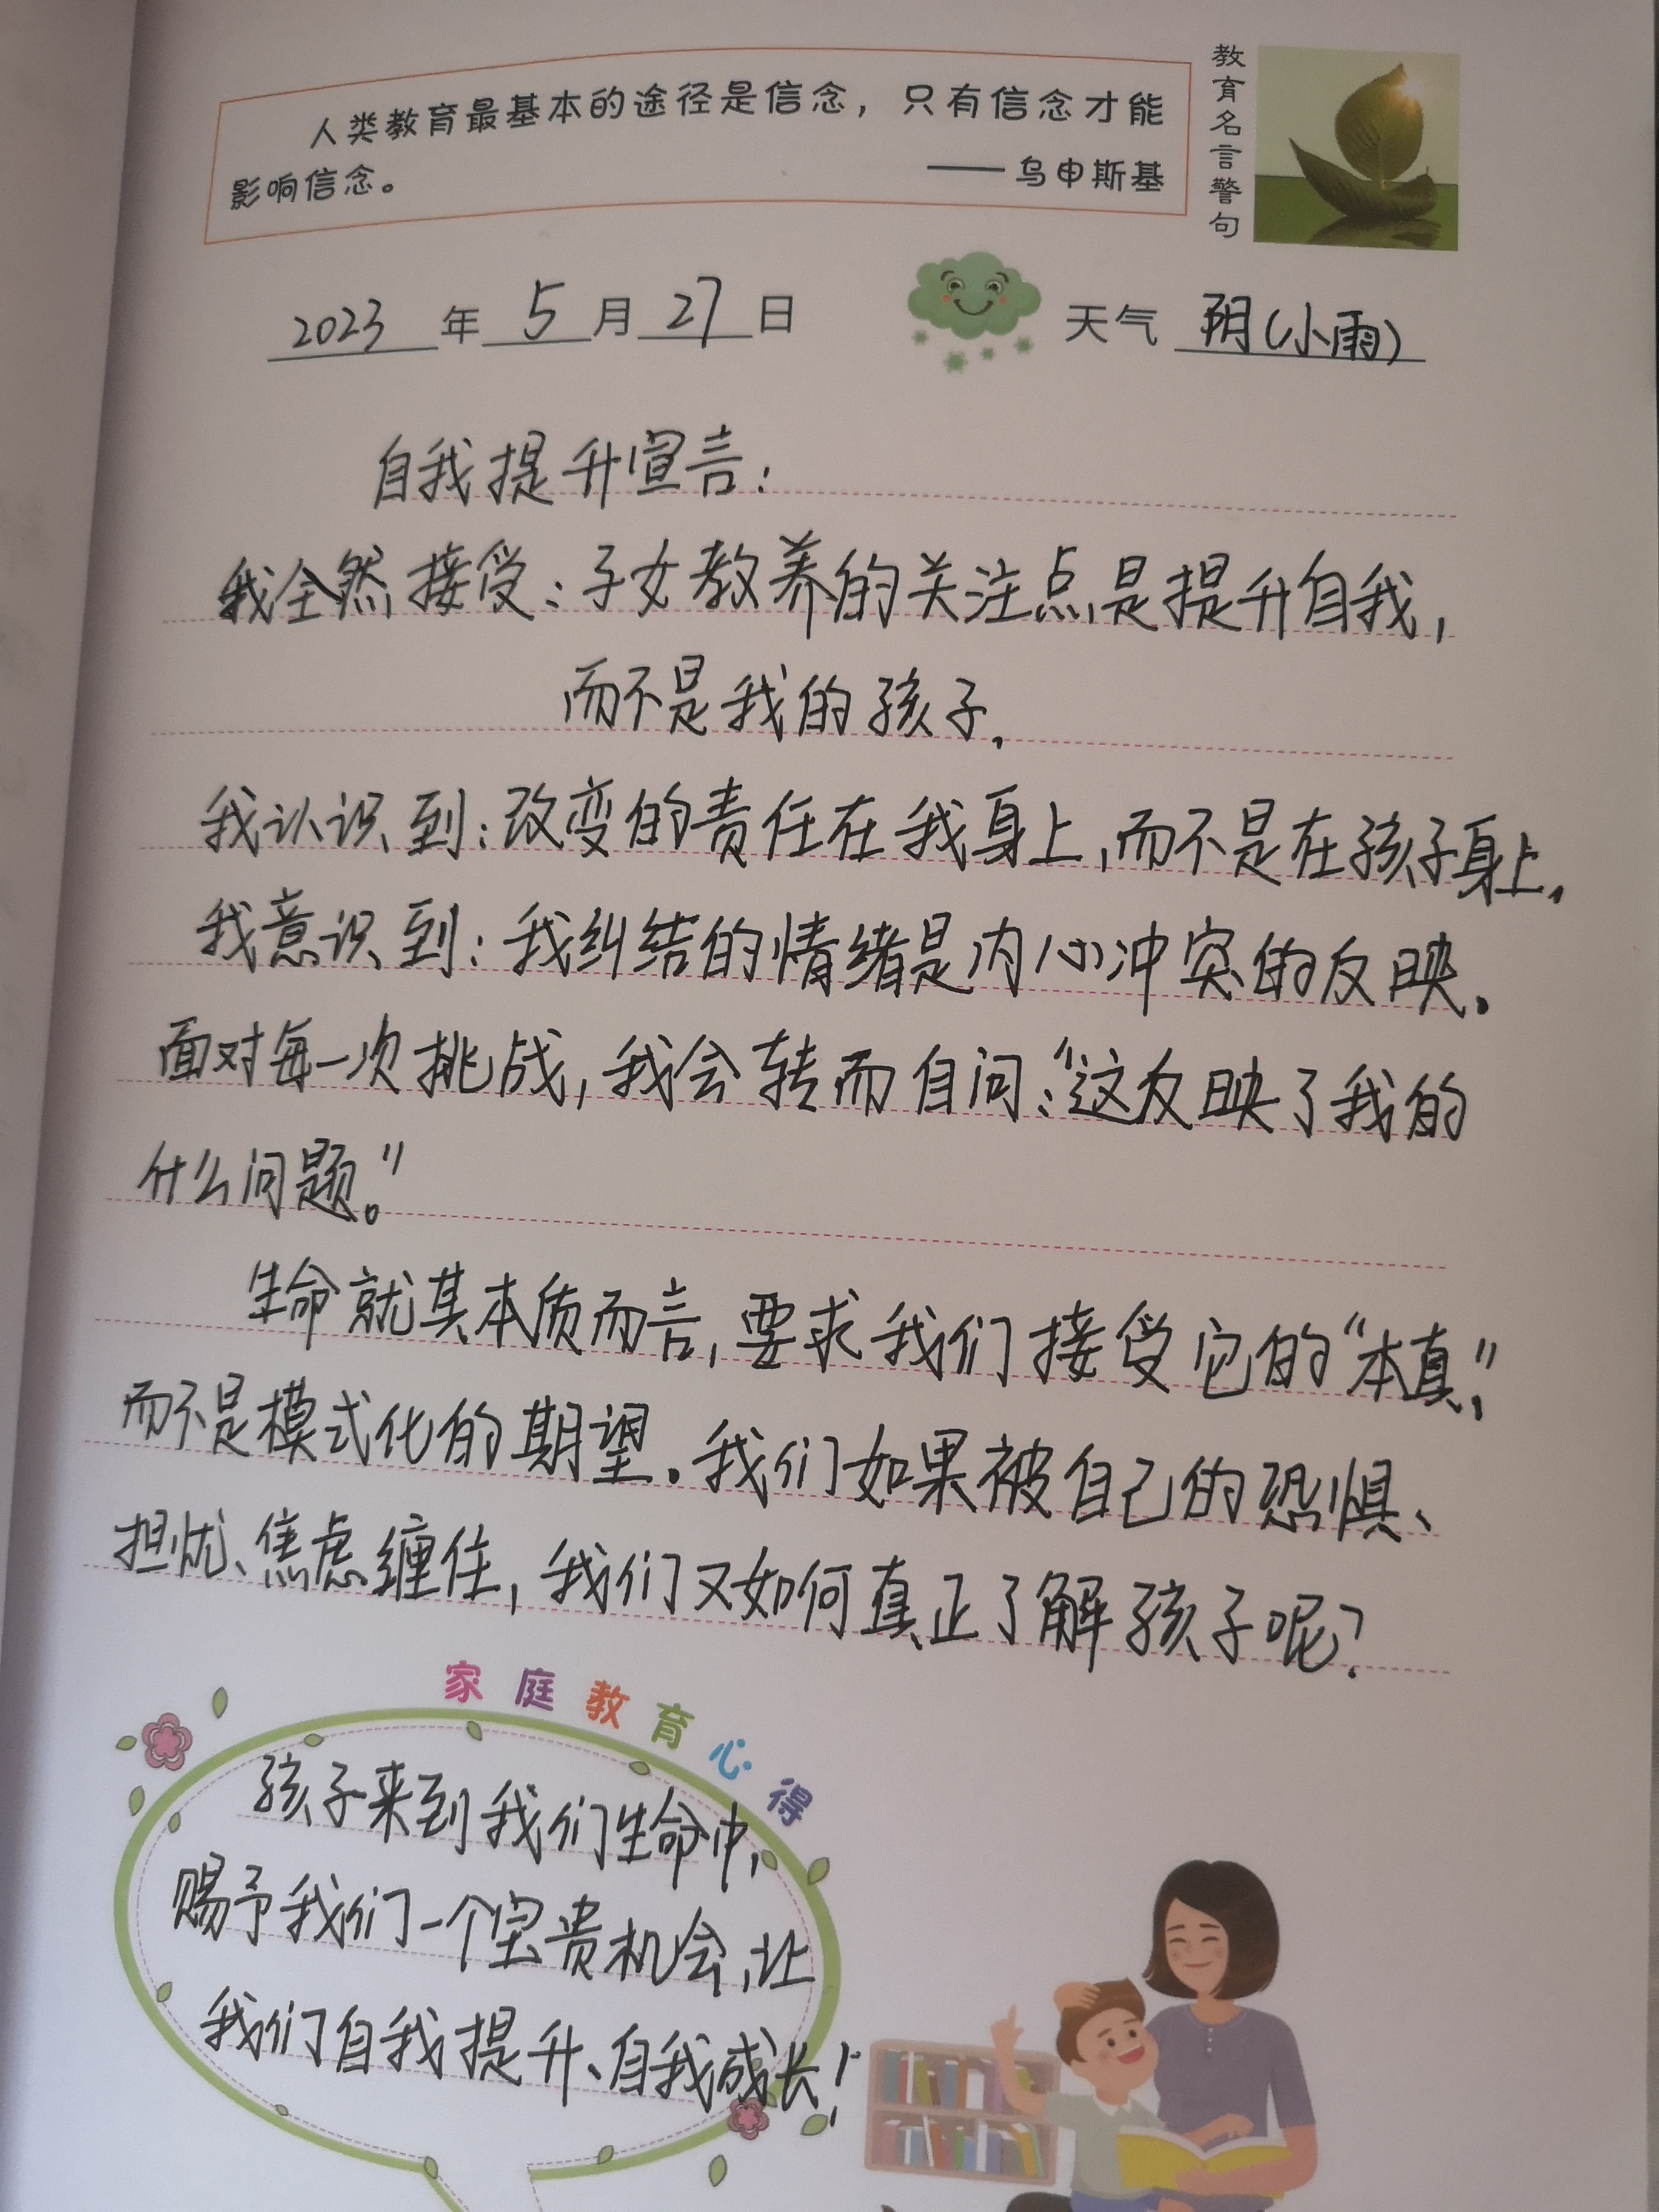 人类教育最基本的途径是信念，只有信念才能
影响信念。
——乌申斯基
教育名言警句
2023年5月27日 天气 阴(小雨)
自我提升宣言：
我全然接受：子女教养的关注点是提升自我，
而不是我的孩子.
我认识到：改变的责任在我身上，而不是在孩子身上.
我意识到：我纠结的情绪是内心冲突的反映.
面对每一次挑战，我会转而自问：“这反映了我的
什么问题。”
生命就其本质而言，要求我们接受它的“本真”，
而不是模式化的期望.我们如果被自己的恐惧、
担忧、焦虑缠住，我们又如何真正了解孩子呢？
家庭教育心得
孩子来到我们生命中，
赐予我们一个宝贵机会，让
我们自我提升、自我成长！